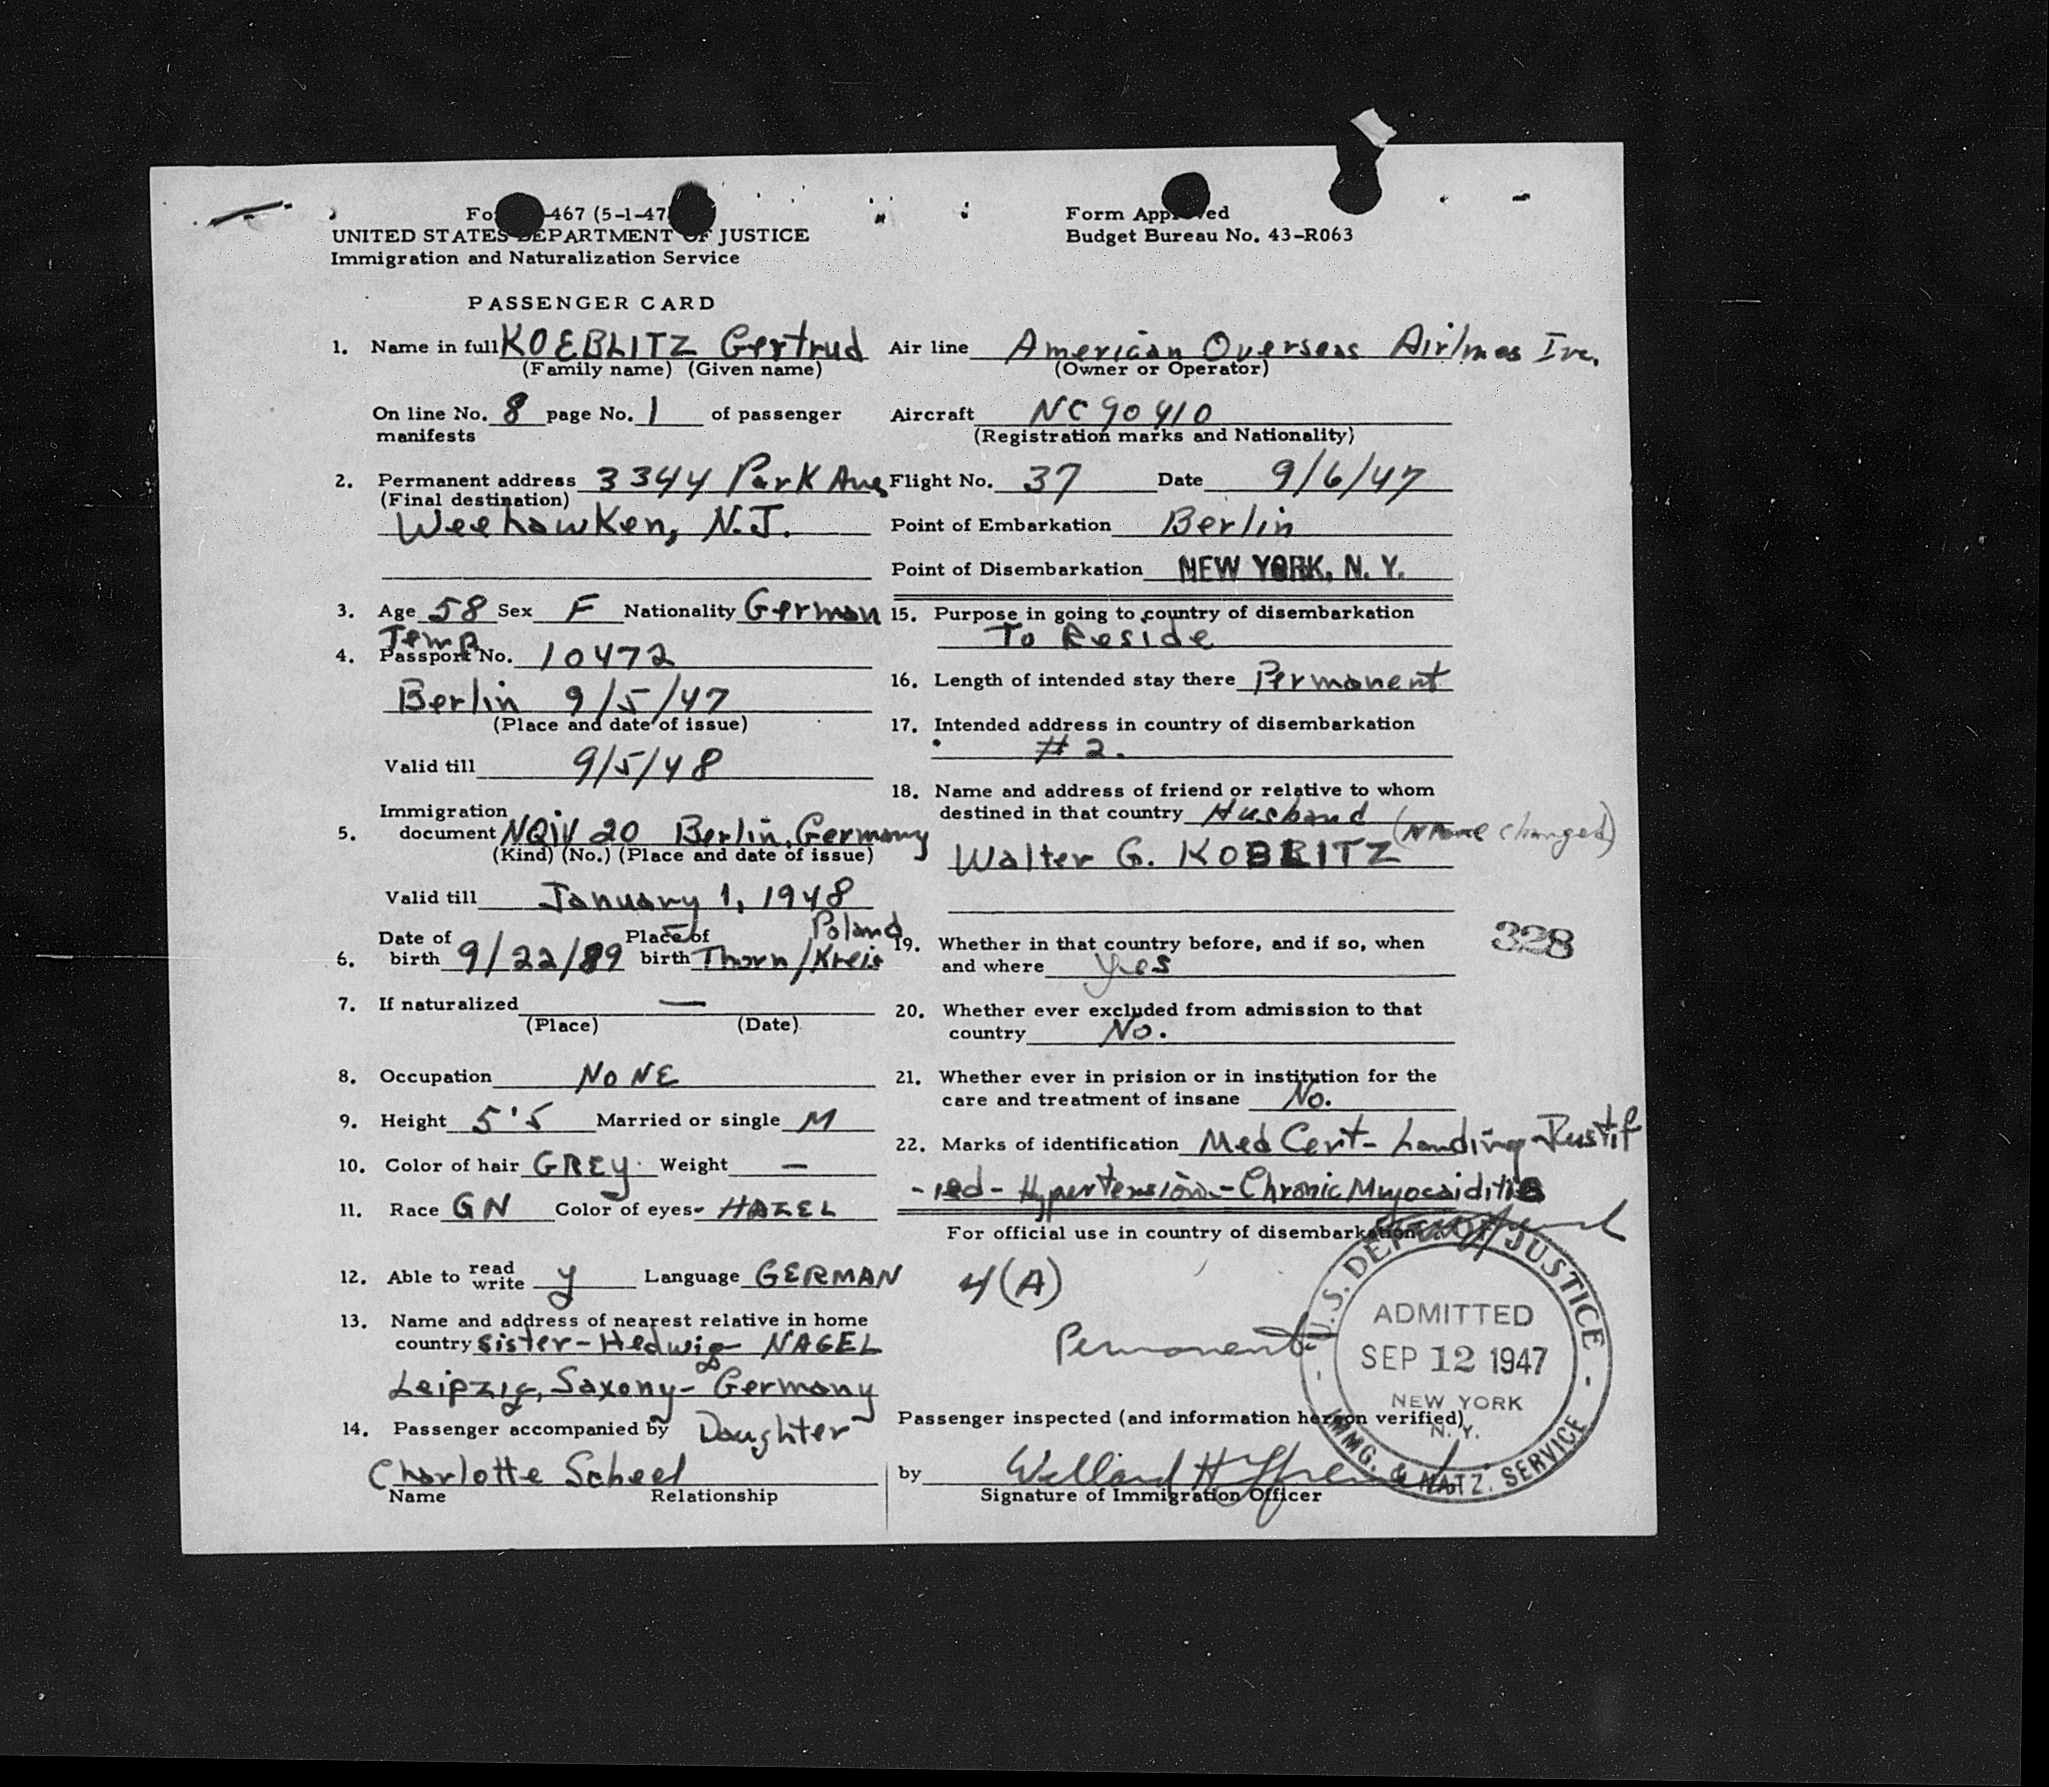 Fo -467 (5-1-47
UNITED STATES DEPARTMENT OF JUSTICE
Immigration and Naturalization Service
PASSENGER CARD
1. Name in full KOEBLITZ Gertrud
(Family name) (Given name)
On line No. 8 page No. 1 of passenger
manifests
2. Permanent address 3344 Park Ave
(Final destination)
Weehawken, N.J.
3. Age 58 Sex F Nationality German
Temp
4. Passport No. 10472
Berlin 9/5/47
(Place and date of issue)
Valid till 9/5/48
Immigration
5. document NQIV 20 Berlin, Germany
(Kind) (No.) (Place and date of issue)
Valid till January 1, 1948
Poland
Date of Place of
6. birth 9/22/89 birth Thorn/Kreis
7. If naturalized —
(Place) (Date)
8. Occupation NONE
9. Height 5'5 Married or single M
10. Color of hair GREY Weight —
11. Race GN Color of eyes- HAZEL
12. Able to read
write y Language GERMAN
13. Name and address of nearest relative in home
country sister - Hedwig NAGEL
Leipzig, Saxony - Germany
14. Passenger accompanied by Daughter
Charlotte Scheel
Name Relationship
Form Approved
Budget Bureau No. 43-R063
Air line American Overseas Airlines Inc.
(Owner or Operator)
Aircraft NC 90410
(Registration marks and Nationality)
Flight No. 37 Date 9/6/47
Point of Embarkation Berlin
Point of Disembarkation NEW YORK, N. Y.
15. Purpose in going to country of disembarkation
To Reside
16. Length of intended stay there Permanent
17. Intended address in country of disembarkation
#2.
18. Name and address of friend or relative to whom
destined in that country Husband
(Name changed)
Walter G. KOBLITZ
19. Whether in that country before, and if so, when
and where Yes
328
20. Whether ever excluded from admission to that
country No.
21. Whether ever in prision or in institution for the
care and treatment of insane No.
22. Marks of identification Med Cert - Landing Justif
-ied - Hypertension - Chronic Myocarditis
For official use in country of disembarkation
4(A)
Permanent
U.S. DEPT. OF JUSTICE
ADMITTED
SEP 12 1947
NEW YORK
N. Y.
IMMG. & NATZ. SERVICE
Passenger inspected (and information hereon verified)
by
Signature of Immigration Officer